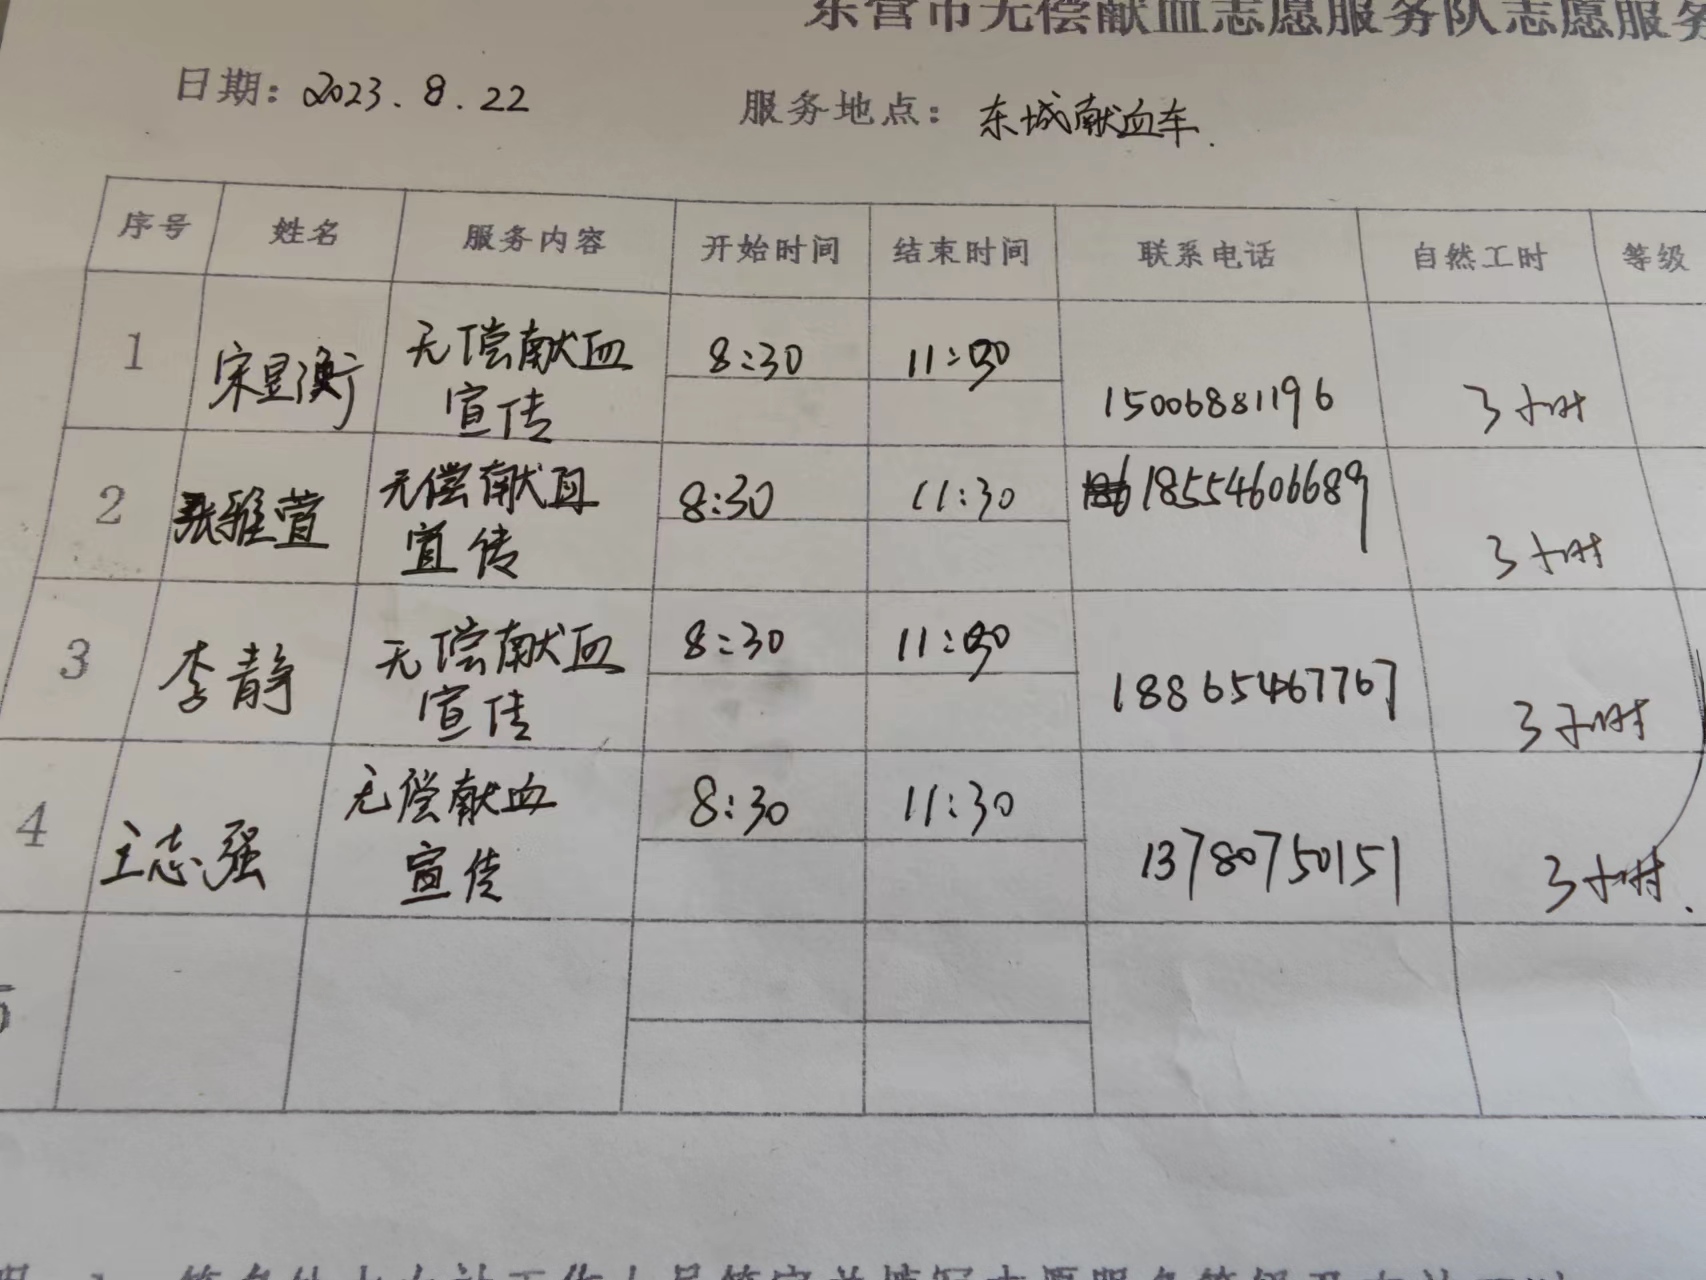 东营市无偿献血志愿服务队志愿服务
日期: 2023.8.22 服务地点: 东城献血车.
序号 姓名 服务内容 开始时间 结束时间 联系电话 自然工时 等级
1 宋昱衡 无偿献血 8:30 11:30 15006881196 3小时
宣传
2 张雅萱 无偿献血 8:30 11:30 18554606689 3小时
宣传
3 李静 无偿献血 8:30 11:30 18865467767 3小时
宣传
4 王志强 无偿献血 8:30 11:30 13780750151 3小时.
宣传
5